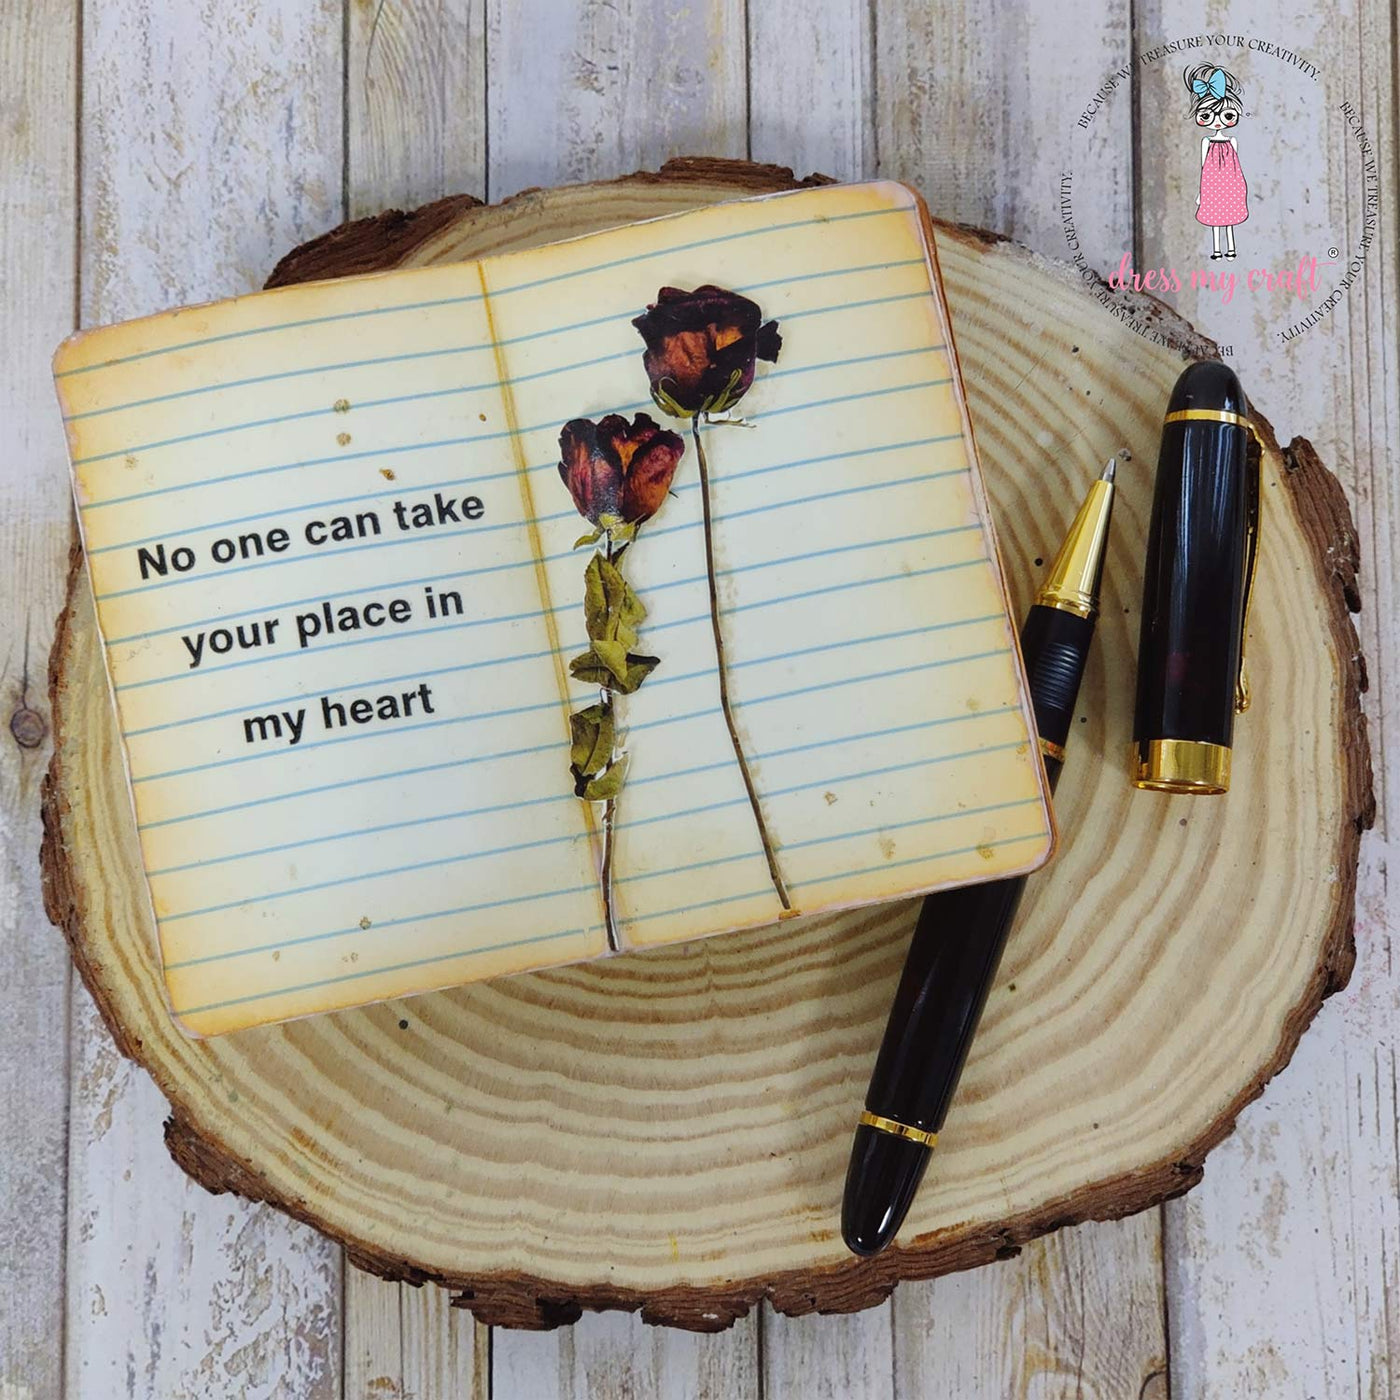 No one can take
your place in
my heart
BECAUSE WE TREASURE YOUR CREATIVITY.
BECAUSE WE TREASURE YOUR CREATIVITY.
BECAUSE WE TREASURE YOUR CREATIVITY.
dress my craft®